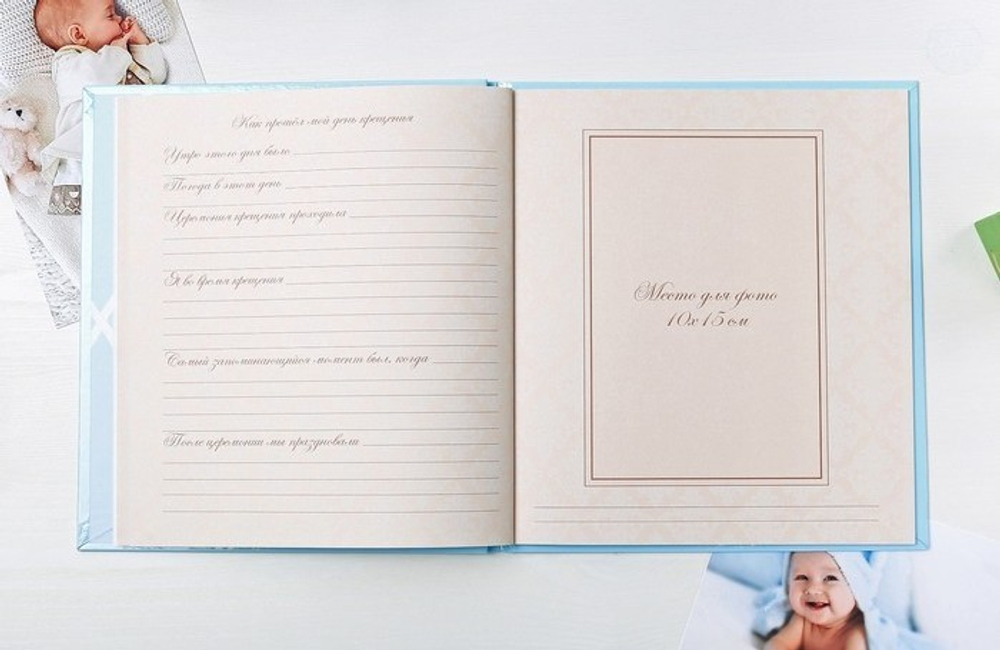 Как прошёл мой день крещения
Утро этого дня было
Погода в этот день
Церемония крещения проходила
Я во время крещения
Самый запоминающийся момент был, когда
После церемонии мы праздновали
Место для фото
10х15 см